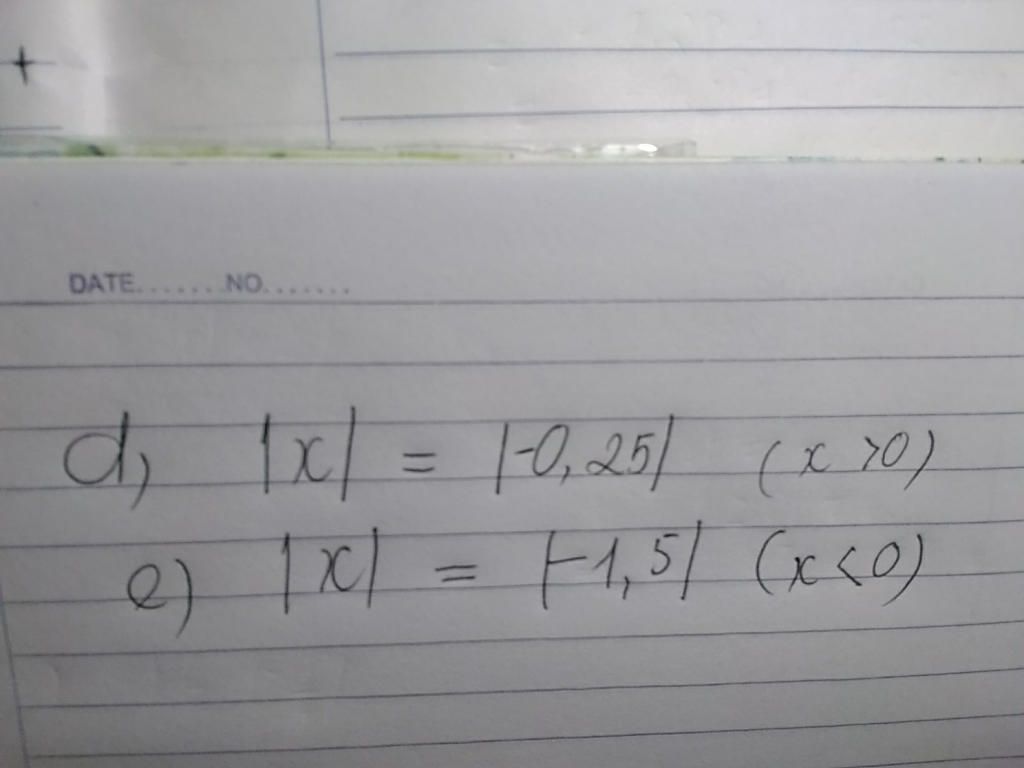 +
DATE.......NO.......
d, |x| = |-0,25| (x >0)
e) |x| = |-1,5| (x < 0)